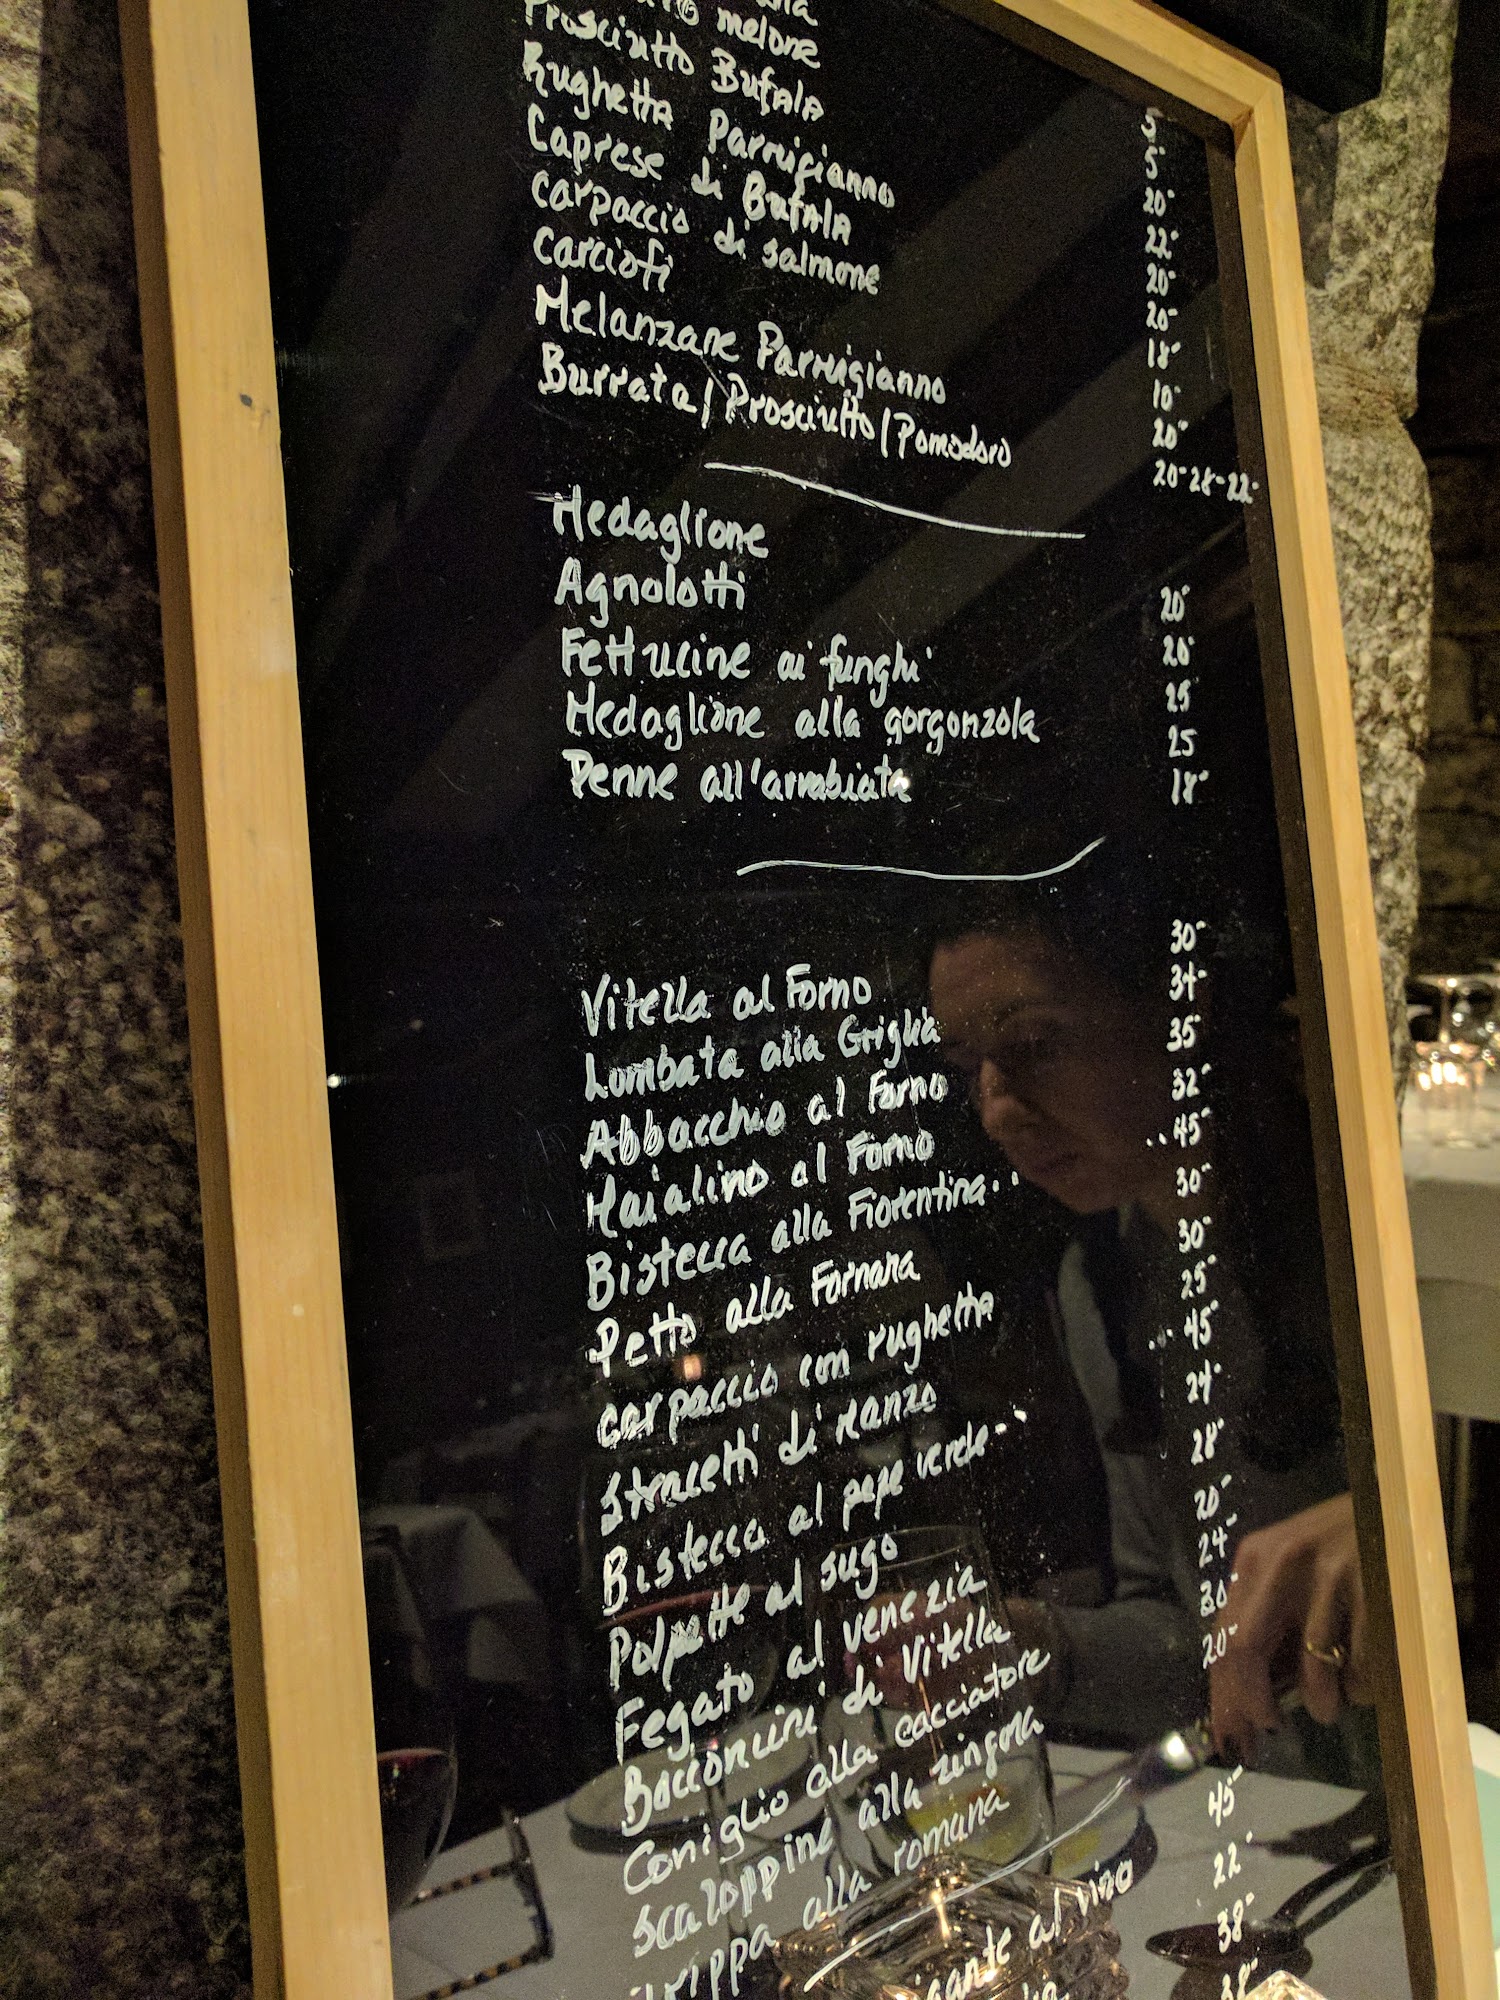 melone
Prosciutto Bufala 5
Rughetta Parmigianno 5
Caprese di Bufala 20-
Carpaccio di salmone 22-
Carciofi 20-
20-
Melanzane Parmigianno 18-
Burrata/Prosciutto/Pomodoro 10-
20-
20-28-22-
Medaglione
Agnolotti 20-
Fettucine ai funghi 20-
25
Medaglione alla gorgonzola 25
Penne all'arrabiata 18-
Vitella al Forno 30-
Lombata alla Griglia 34-
Abbacchio al Forno 35-
Maialino al Forno 32-
Bistecca alla Fiorentina.. ..45-
Petto alla Fornara 30-
Carpaccio con rughetta 30-
Stracetti di manzo 25-
Bistecca al pepe verde... ...45-
Polpette al sugo 24-
Fegato al venezia 28-
Bocconcini di Vitella 20-
Coniglio alla cacciatore 24-
Scaloppine alla zingara 30-
alla romana 20-
al vino 45-
22-
38-
38-